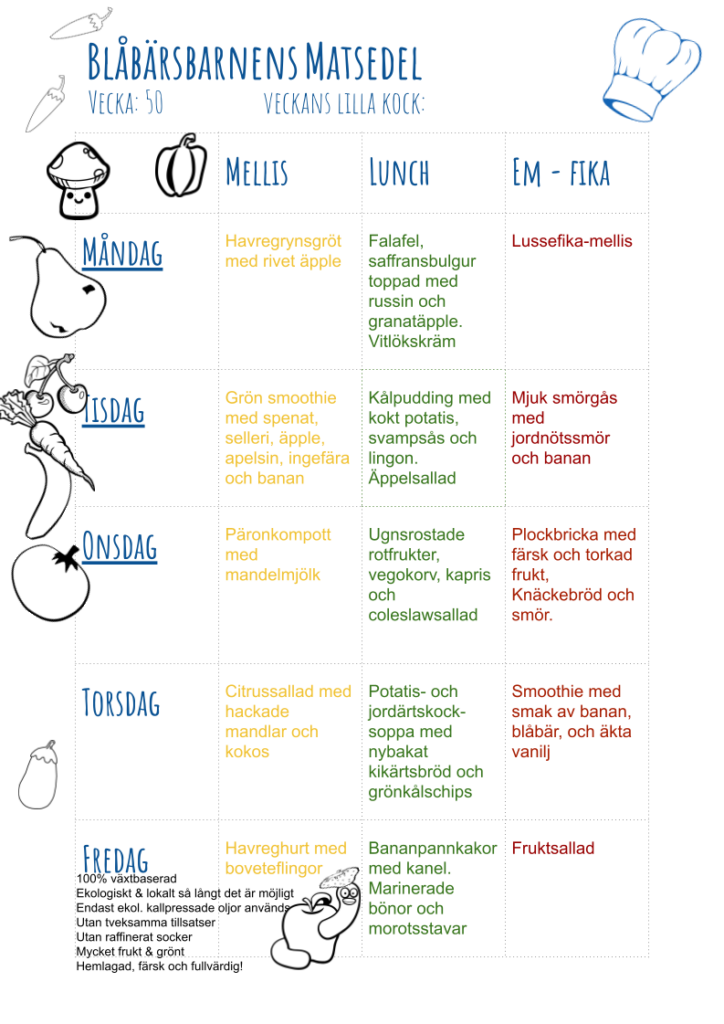 Blåbärsbarnens Matsedel
Vecka: 50 veckans lilla kock:
Mellis Lunch Em - fika
Måndag
Havregrynsgröt
med rivet äpple
Falafel,
saffransbulgur
toppad med
russin och
granatäpple.
Vitlökskräm
Lussefika-mellis
Tisdag
Grön smoothie
med spenat,
selleri, äpple,
apelsin, ingefära
och banan
Kålpudding med
kokt potatis,
svampsås och
lingon.
Äppelsallad
Mjuk smörgås
med
jordnötssmör
och banan
Onsdag
Päronkompott
med
mandelmjölk
Ugnsrostade
rotfrukter,
vegokorv, kapris
och
coleslawsallad
Plockbricka med
färsk och torkad
frukt,
Knäckebröd och
smör.
Torsdag
Citrussallad med
hackade
mandlar och
kokos
Potatis- och
jordärtskock-
soppa med
nybakat
kikärtsbröd och
grönkålschips
Smoothie med
smak av banan,
blåbär, och äkta
vanilj
Fredag
Havreghurt med
boveteflingor
Bananpannkakor
med kanel.
Marinerade
bönor och
morotsstavar
Fruktsallad
100% växtbaserad
Ekologiskt & lokalt så långt det är möjligt
Endast ekol. kallpressade oljor används
Utan tveksamma tillsatser
Utan raffinerat socker
Mycket frukt & grönt
Hemlagad, färsk och fullvärdig!